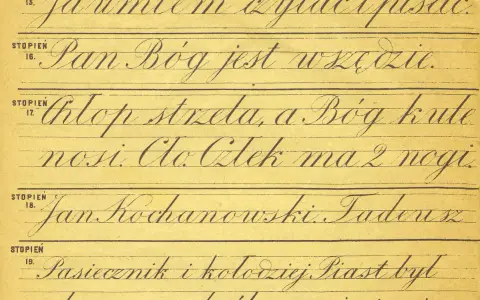 15. Ja umiem czytać i pisać.
STOPIEŃ 16. Pan Bóg jest wszędzie.
STOPIEŃ 17. Chłop strzela, a Bóg kule
nosi. Cło. Człek ma 2 nogi.
STOPIEŃ 18. Jan Kochanowski. Tadeusz
STOPIEŃ 19. Pasiecznik i kołodziej Piast był